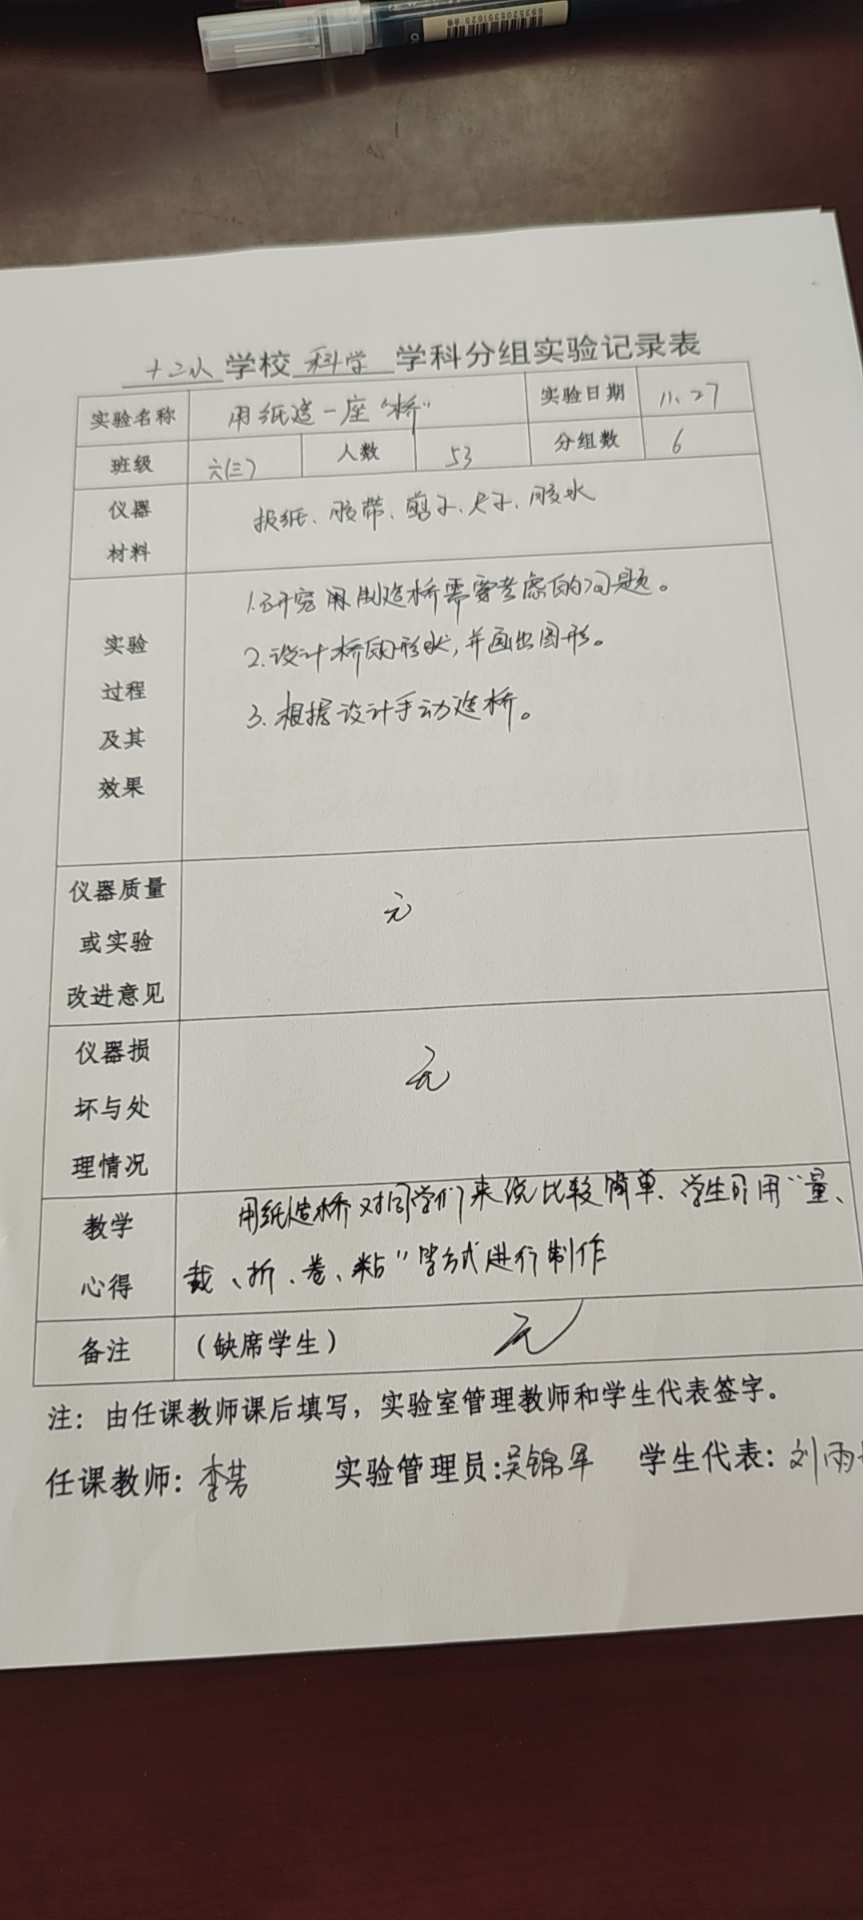 6935205391629
十二小学校 科学 学科分组实验记录表
实验名称 用纸造一座“桥” 实验日期 11.27
班级 六(三) 人数 53 分组数 6
仪器材料 报纸、胶带、剪子、尺子、胶水
实验过程及其效果
1.研究用制造桥需要考虑的问题。
2.设计桥的形状,并画出图形。
3.根据设计手动造桥。
仪器质量或实验改进意见 无
仪器损坏与处理情况 无
教学心得 用纸造桥对同学们来说比较简单、学生可用“量、
裁、折、卷、粘”等方式进行制作
备注 (缺席学生) 无
注:由任课教师课后填写,实验室管理教师和学生代表签字。
任课教师:李芸 实验管理员:吴锦军 学生代表:刘雨